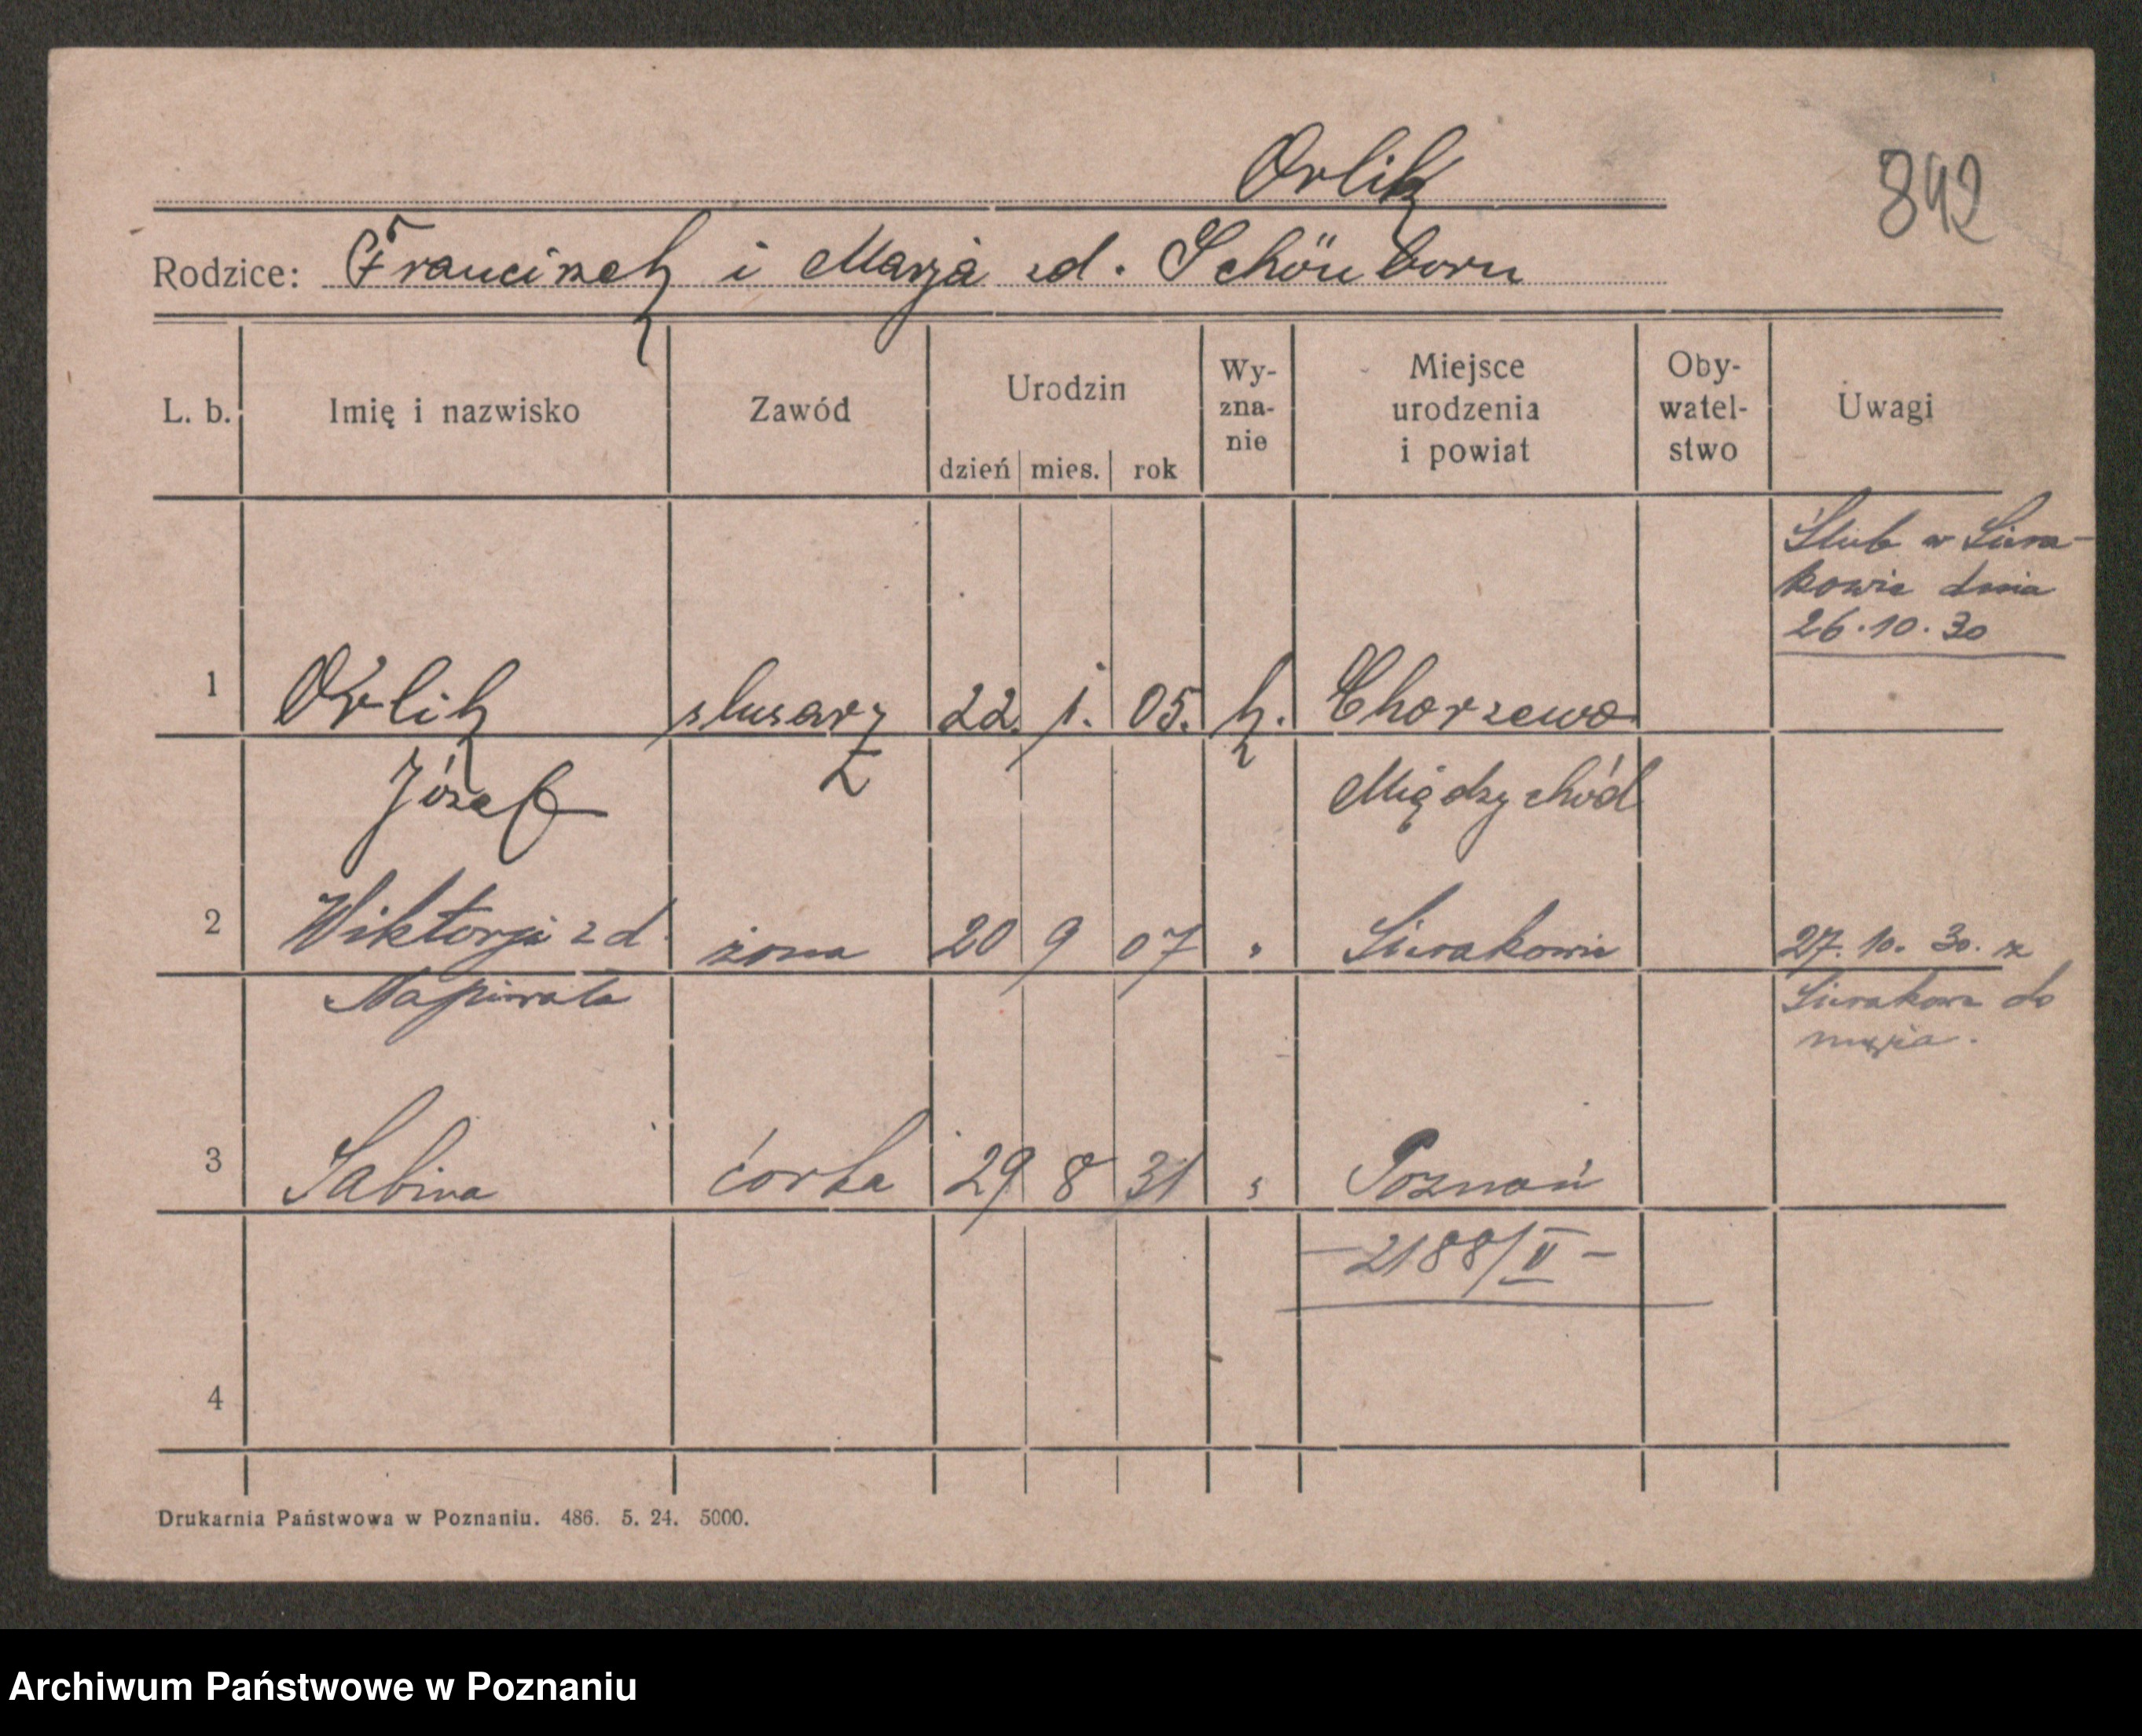 Orlik
842
Rodzice: Franciszek i Marja zd. Schönborn
L. b. Imię i nazwisko Zawód Urodzin dzień mies. rok Wy-zna-nie Miejsce urodzenia i powiat Oby-watel-stwo Uwagi
Ślub w Siera-
kowie dnia
26.10.30
1 Orlik ślusarz 22. 1. 05. k. Chorzewo
Józef Międzychód
2 Wiktorja z d. żona 20 9 07 " Sierakowie 27. 10. 30. z
Napierała Sierakowa do
męża.
3 Sabina córka 29 8 31 " Poznań
-2188/II-
4
Drukarnia Państwowa w Poznaniu. 486. 5. 24. 5000.
Archiwum Państwowe w Poznaniu